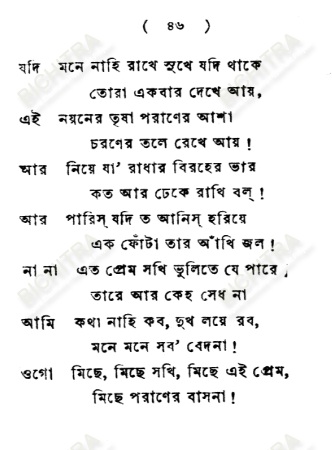 ( ৪৬ )
যদি মনে নাহি রাখে সুখে যদি থাকে
তোরা একবার দেখে আয়,
এই নয়নের তৃষা পরাণের আশা
চরণের তলে রেখে আয়!
আর নিয়ে যা' রাধার বিরহের ভার
কত আর ঢেকে রাখি বল্!
আর পারিস্ যদি ত আনিস্ হরিয়ে
এক ফোঁটা তার আঁখি জল!
না না এত প্রেম সখি ভুলিতে যে পারে,
তারে আর কেহ সেধ না
আমি কথা নাহি কব, দুখ লয়ে রব,
মনে মনে সব' বেদনা!
ওগো মিছে, মিছে সখি, মিছে এই প্রেম,
মিছে পরাণের বাসনা!